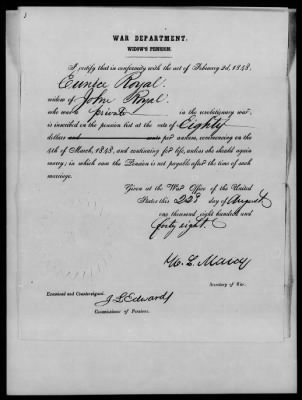 WAR DEPARTMENT.
WIDOW'S PENSION.
I certify that in conformity with the act of February 2d, 1848,
Eunice Royal
widow of John Royal
who was a private in the revolutionary war,
is inscribed in the pension list at the rate of Eighty
dollars and cents per annum, commencing on the
4th of March, 1848, and continuing for life, unless she should again
marry; in which case the Pension is not payable after the time of such
marriage.
Given at the War Office of the United
States this 22d day of August
one thousand eight hundred and
forty eight.
W. L. Marcy
Secretary of War.
Examined and Countersigned.
J L Edwards
Commissioner of Pensions.